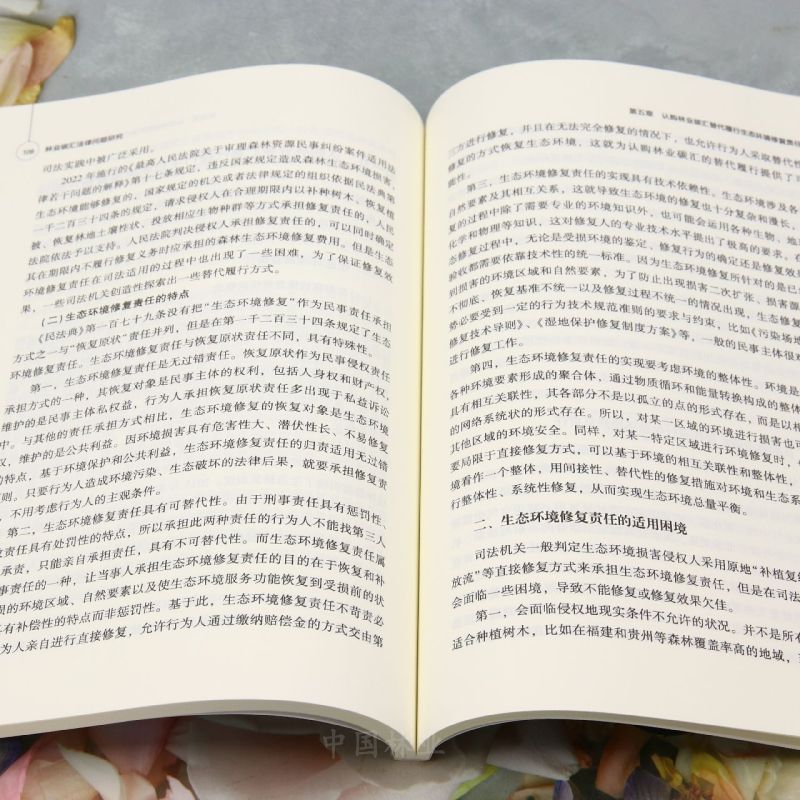 108 林业碳汇法律问题研究
司法实践中被广泛采用。
2022年施行的《最高人民法院关于审理森林资源民事纠纷案件适用法
律若干问题的解释》第十七条规定，违反国家规定造成森林生态环境损害，
生态环境能够修复的，国家规定的机关或者法律规定的组织依据民法典第
一千二百三十四条的规定，请求侵权人在合理期限内以补种树木、恢复植
被、恢复林地土壤性状、投放相应生物种群等方式承担修复责任的，人民
法院依法予以支持。人民法院判决侵权人承担修复责任的，可以同时确定
其在期限内不履行修复义务时应承担的森林生态环境修复费用。但是生态
环境修复责任在司法适用的过程中也出现了一些困难，为了保证修复效
果，一些司法机关创造性探索出一些替代履行方式。
（二）生态环境修复责任的特点
《民法典》第一百七十九条没有把“生态环境修复”作为民事责任承担
方式之一与“恢复原状”责任并列，但是在第一千二百三十四条规定了生态
环境修复责任。生态环境修复责任与恢复原状责任不同，具有特殊性。
第一，生态环境修复责任是无过错责任。恢复原状作为民事侵权责任
承担方式的一种，其恢复对象是民事主体的权利，包括人身权和财产权，
维护的是民事主体私权益，行为人承担恢复原状责任多出现于私益诉讼
中。与其他的责任承担方式相比，生态环境修复的恢复对象是生态环境
权，维护的是公共利益。因环境损害具有危害性大、潜伏性长、不易修复
的特点，基于环境保护和公共利益，生态环境修复责任的归责适用无过错
原则。只要行为人造成环境污染、生态破坏的法律后果，就要承担修复责
，不用考虑行为人的主观条件。
第二，生态环境修复责任具有可替代性。由于刑事责任具有惩罚性、
责任具有处罚性的特点，所以承担此两种责任的行为人不能找第三人
承责，只能亲自承担责任，具有不可替代性。而生态环境修复责任属
事责任的一种，让当事人承担生态环境修复责任的目的在于恢复和补
损的环境区域、自然要素以及使生态环境服务功能恢复到受损前的状
有补偿性的特点而非惩罚性。基于此，生态环境修复责任不苛责必
为人亲自进行直接修复，允许行为人通过缴纳赔偿金的方式交由第
第五章 认购林业碳汇替代履行生态环境修复责任
三方进行修复，并且在无法完全修复的情况下，也允许行为人采取替代性
修复的方式恢复生态环境，这就为认购林业碳汇的替代履行提供了可
能性。
第三，生态环境修复责任的实现具有技术依赖性。生态环境涉及各
自然要素及其相互关系，这就导致生态环境的修复也十分复杂和漫长，
复的过程中除了需要专业的环境知识外，也可能会运用各种生物、地
化学和物理等知识，这对修复人的专业技术水平提出了极高的要求。在
态修复过程中，无论是受损环境的鉴定、修复行为的确定还是修复效
验收都需要依靠技术性的统一标准。因为生态环境修复所针对的是已
到损害的环境区域和自然要素，为了防止出现损害二次扩张、损害源
不彻底、恢复基准不统一以及修复过程不统一的情况出现，生态修复
势必要受到一定的行为技术规范准则的要求与约束，比如《污染场地
修复技术导则》、《湿地保护修复制度方案》等，一般的民事主体很
进行修复工作。
第四，生态环境修复责任的实现要考虑环境的整体性。环境是
各种环境要素形成的聚合体，通过物质循环和能量转换构成的整体
具有相互关联性，其各部分不是以孤立的点的形式存在，而是以相
的网络系统状的形式存在。所以，对某一区域的环境进行损害也可
其他区域的环境安全。同样，对某一特定区域进行环境修复时，
要局限于直接修复方式，可以基于环境的相互关联性和整体性，
境看作一个整体，用间接性、替代性的修复措施对环境和生态系
行整体性、系统性修复，从而实现生态环境总量平衡。
二、生态环境修复责任的适用困境
司法机关一般判定生态环境损害侵权人采用原地“补植复绿
放流”等直接修复方式来承担生态环境修复责任，但是在司法
会面临一些困境，导致不能修复或修复效果欠佳。
第一，会面临侵权地现实条件不允许的状况。并不是所有
适合种植树木，比如在福建和贵州等森林覆盖率高的地域，
中国林业